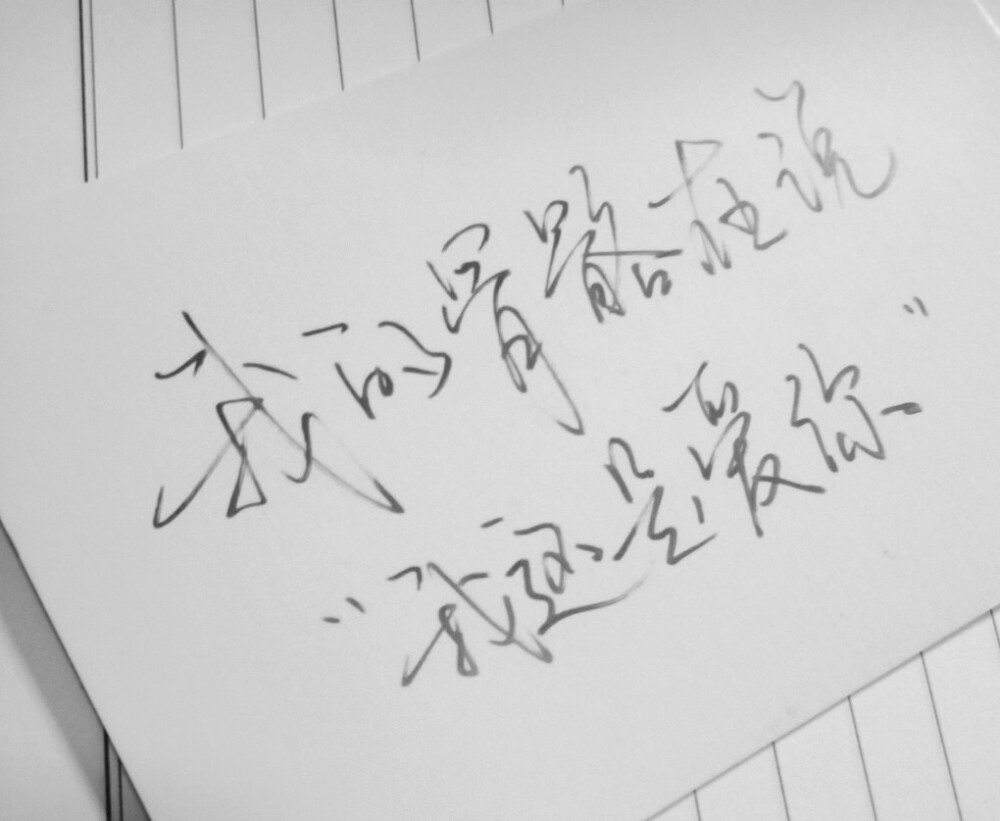 我的骨骼在说
“我还是爱你”